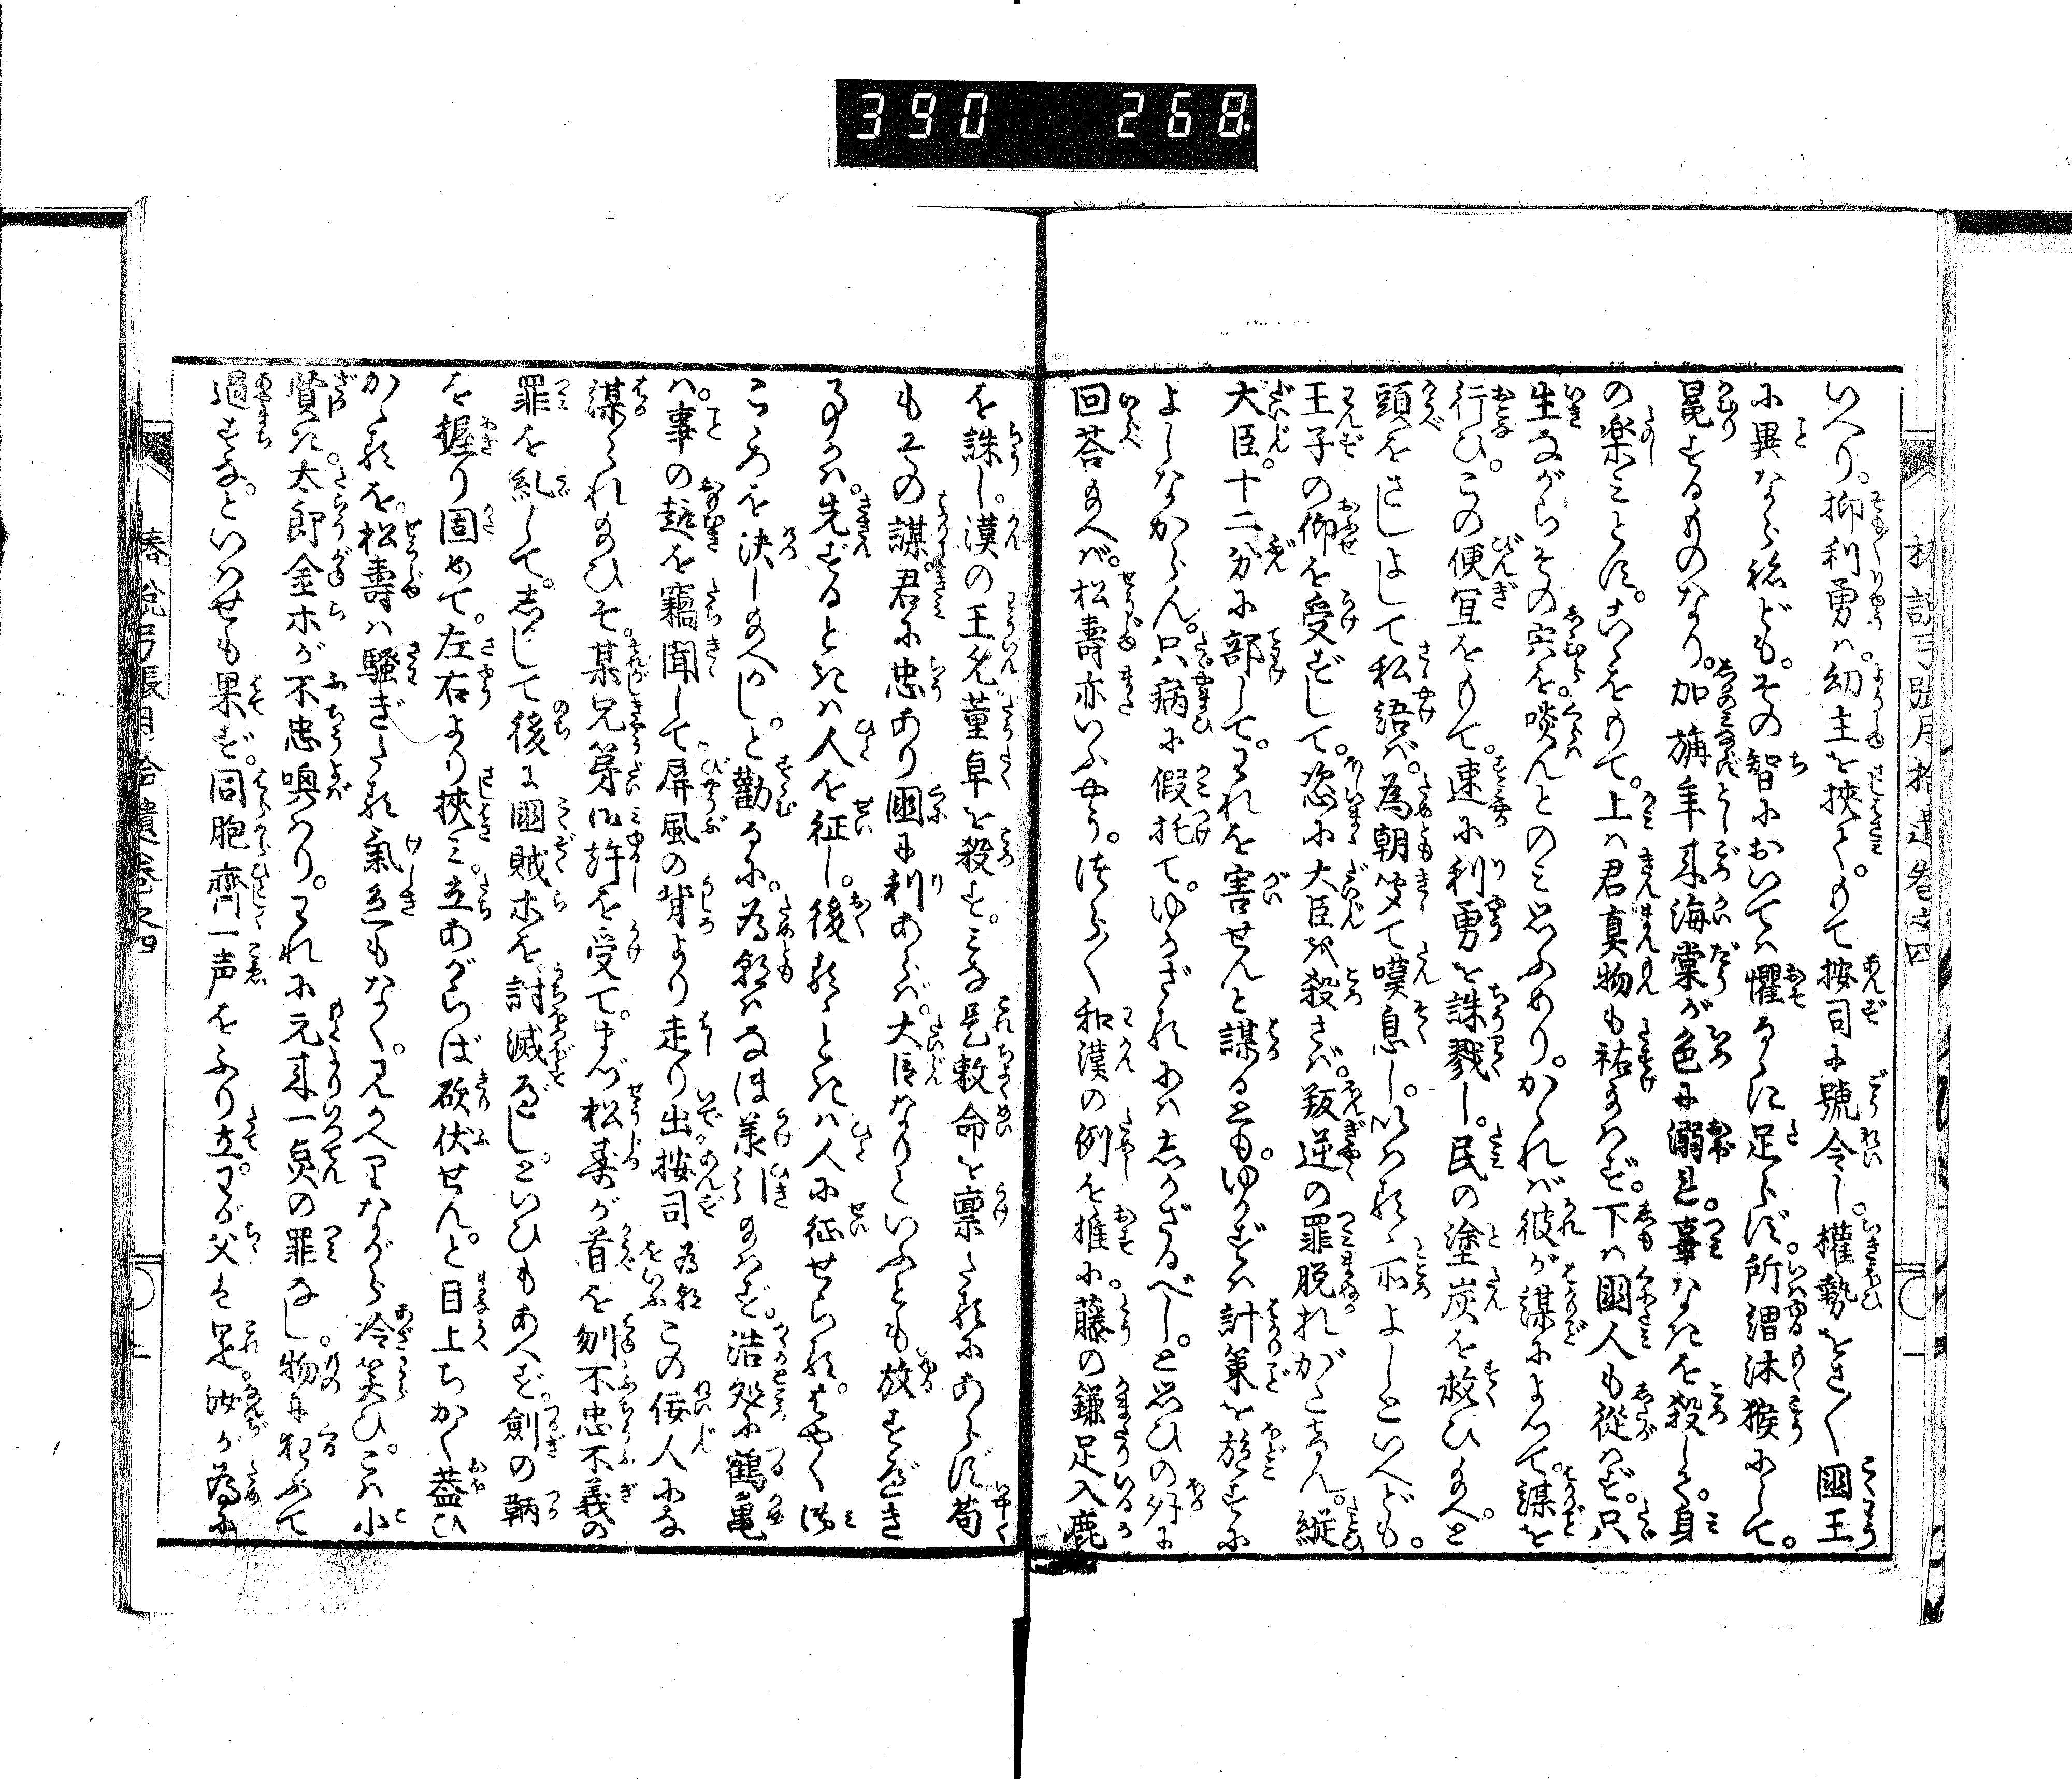 390 268
いへり。抑利勇ハ。幼主を挾て。もて按司に號令し。權勢をさ〳〵國王
に異ならねども。その智においてハ懼るゝに足らず。所謂沐猴にして。
冕するものなり。加旃年来海棠が色に溺れ。辜なきを殺して。身
の楽みとす。こゝをもて。上ハ君真物も祐給はず。下ハ國人も從はず。只
生ながらその宍を啖んとのみ思ふめり。かゝれバ彼が謀によつて。謀を
行ひ。この便宜をもて。速に利勇を誅戮し。民の塗炭を救ひ給へ。と
頭をさしよして私語バ。為朝笑て嘆息し。いはるゝ所よしといへども。
王子の仰を受ずして。恣に大臣を殺さバ。叛逆の罪脱れがたけん。縦
大臣。十二分に部して。われを害せんと謀るとも。ゆかずハ計策を施すに
よしなからん。只病に假托て。ゆかざるにハしかざるべし。と思ひの外に
回荅給へバ。松壽亦いふやう。つら〳〵和漢の例を推に。藤の鎌足入鹿
を誅し。漢の王允董卓を殺す。みな是敕命を稟たるにあらず。苟
もその謀。君に忠あり國に利あらバ。大臣なりといふとも放すべき
事かハ。先ずるときハ人を征し。後るゝときハ人に征せらる。はやく御
こゝろを決し給へかし。と勸るに。為朝ハなほ美引給はず。浩処に鶴亀
ハ。事の趣を竊聞して。屏風の背より走り出。按司 為朝をいふ この佞人にな
謀られ給ひそ。某兄弟御許を受て。まづ松寿が首を刎不忠不義の
罪を糺して。しかして後に國賊ホを討滅すべし。といひもあへず。劍の鞆
を握り固めて。左右より挾み。立あがらば砍伏せん。と目上ちかく蓋ひ
かゝるを。松壽ハ騒ぎたる氣色もなく。見かへりながら冷笑ひ。こハ小
賢し。太郎金ホが不忠喚はり。われに元来一点の罪なし。物に狂ふて
過すな。といはせも果ず。同胞齊一声をふり立。わが父は是。汝が為に
椿説弓張月拾遺巻之四